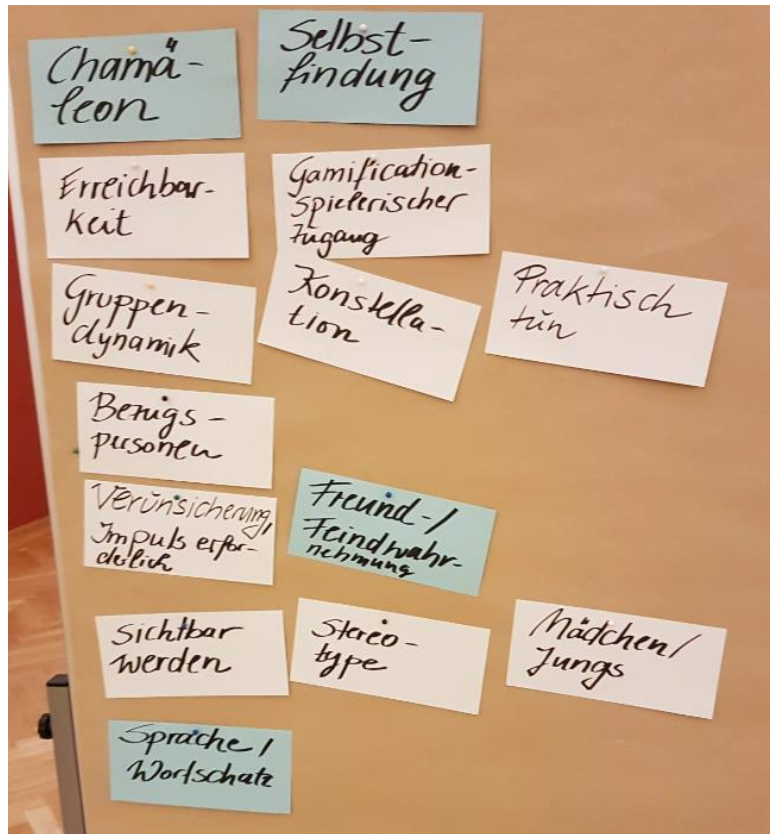 Chamä-
leon
Selbst-
findung
Erreichbar-
keit
Gamification-
spielerischer
Zugang
Gruppen-
dynamik
Konstella-
tion
Praktisch
tun
Bezugs-
personen
Verunsicherung,
Impuls erfor-
derlich
Freund-/
Feindwahr-
nehmung
Sichtbar
werden
Stereo-
type
Mädchen/
Jungs
Sprache/
Wortschatz